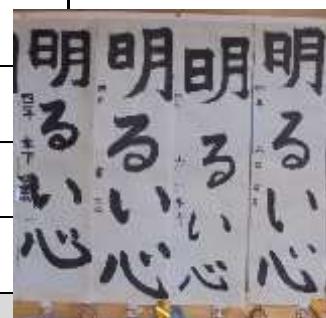 明るい心
明るい心
明るい心
明るい心